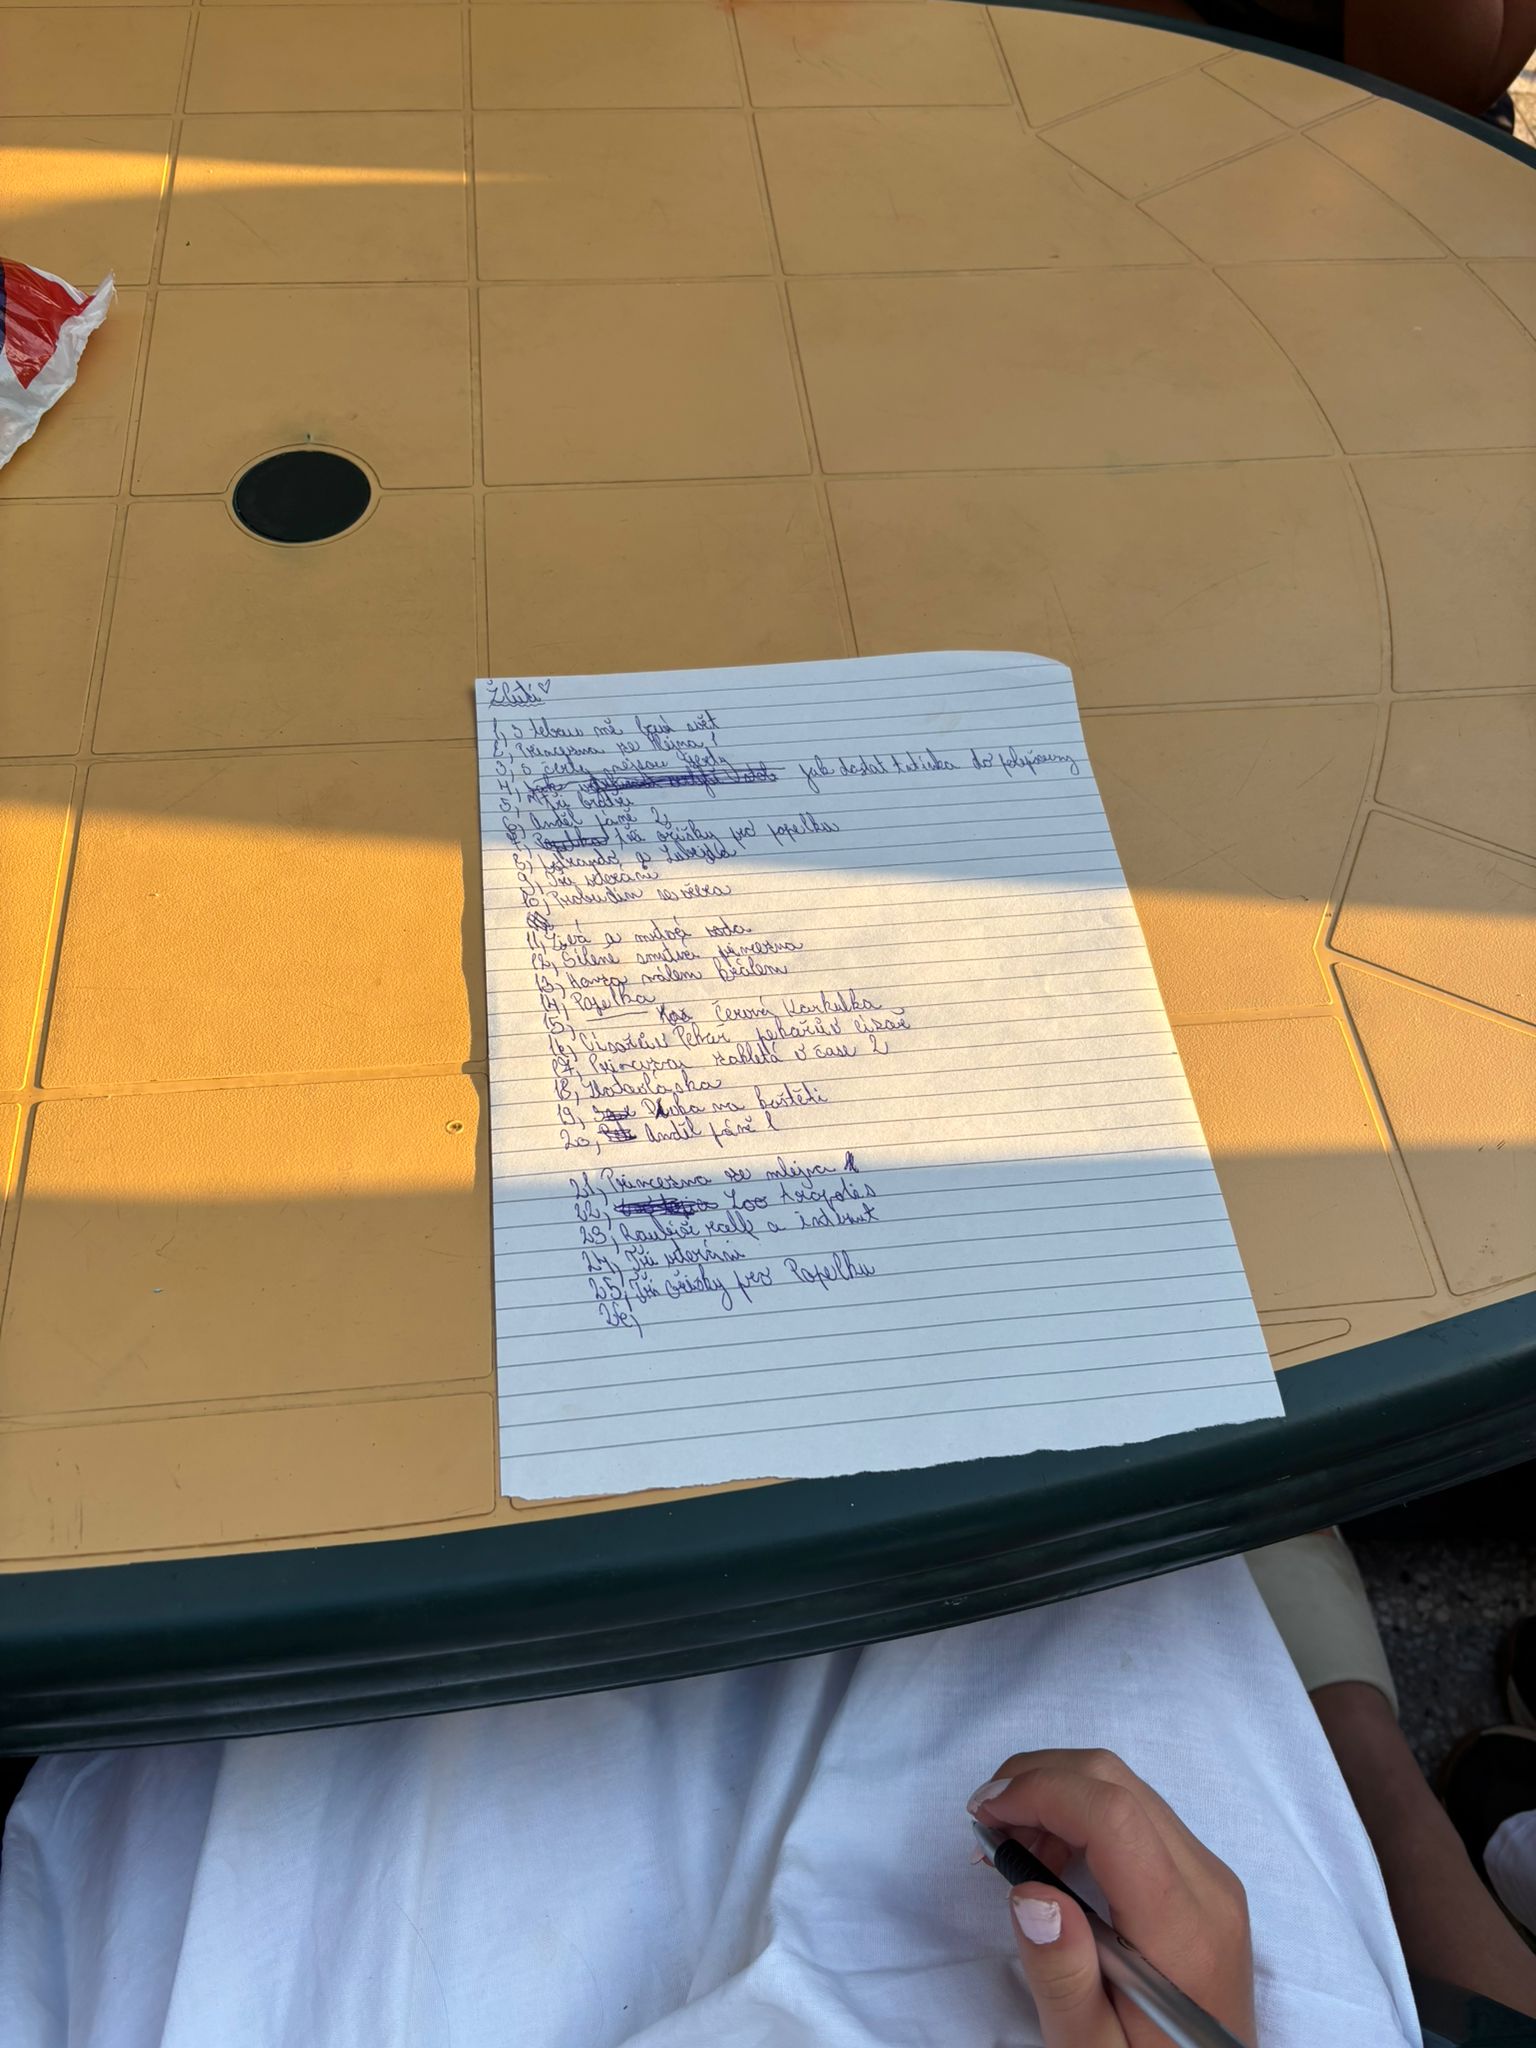 Žlutí ♡
1, S tebou mě baví svět
2, Princezna ze Mlejna 1
3, S čerty nejsou žerty
4, jak dostat tatínka do polepšovny
5, Tři bratři
6, Anděl páně 2
7, Popelka tři oříšky pro popelka
8, Lotrando a Zubejda
9, Tři veteráni
10, Probudím se včera
11, Živá a mrtvá voda
12, Šíleně smutná princezna
13, Honza málem králem
14, Popelka
15, Červená Karkulka
16, Císařův Pekař pekařův císař
17, Princezna zakletá v čase 2
18, Zlatovláska
19, Dívka na koštěti
20, Anděl páně 1
21, Princezna ze mlejna
22, Zoo tropolis
23, Raubíř ralf a internet
24, Tři veteráni
25, Tři oříšky pro Popelku
26,